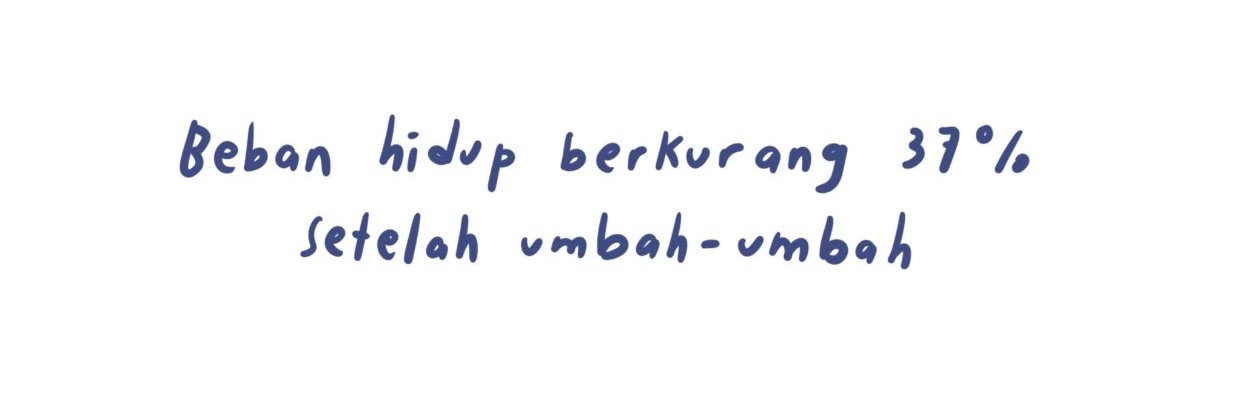 Beban hidup berkurang 37%
setelah umbah-umbah